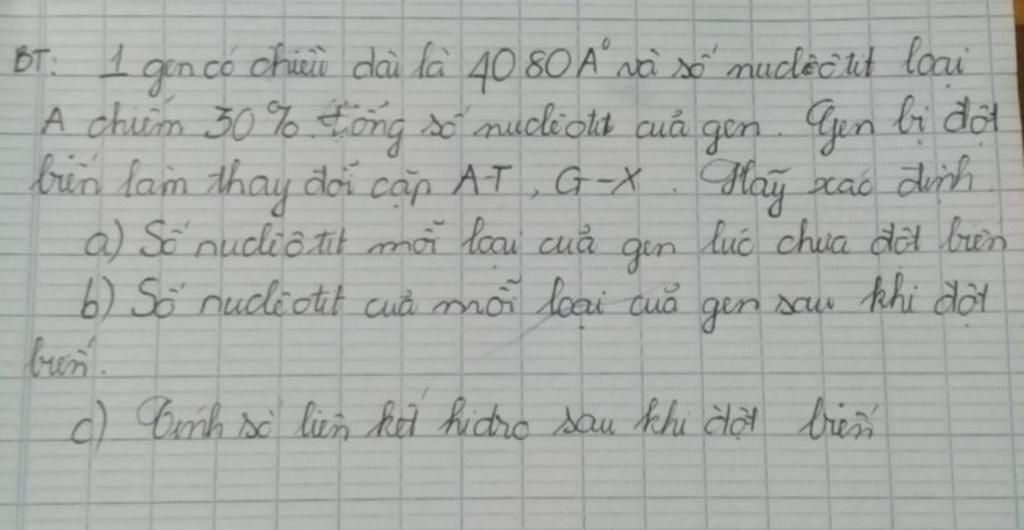 BT: 1 gen có chiều dài là 4080A° và số nuclêôtit loại
A chiếm 30% tổng số nuclêotit của gen. Gen bị đột
biến làm thay đổi cặp A-T, G-X. Hãy xác định
a) Số nuclêôtit mỗi loại của gen lúc chưa đột biến
b) Số nuclêotit của mỗi loại của gen sau khi đột
biến.
c) Tính số liên kết hidro sau khi đột biến